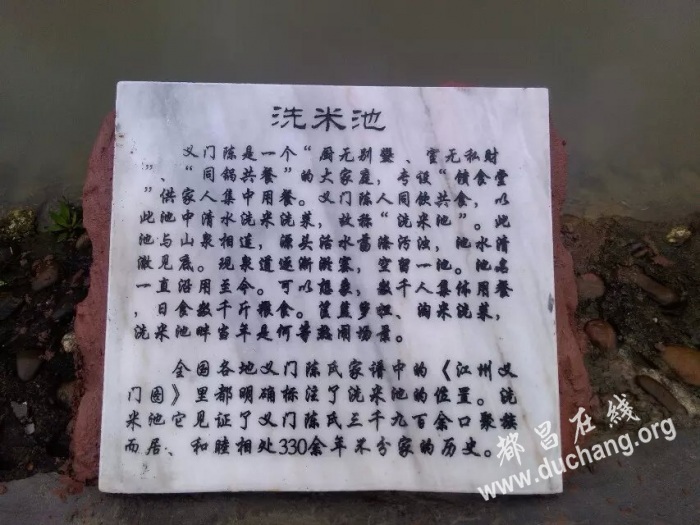 洗米池
义门陈是一个“厨无别爨、室无私财
”、“同锅共餐”的大家庭，专设“馈食堂
”供家人集中用餐。义门陈人同饮共食，以
此池中清水洗米洗菜，故称“洗米池”。此
池与山泉相通，源头活水荡涤污浊，池水清
澈见底。现泉道逐渐淤塞，空留一池。池名
一直沿用至今。可以想象，数千人集体用餐
，日食数千斤粮食。筐篮箩 、淘米洗菜，
洗米池畔当年是何等热闹场景。
全国各地义门陈氏家谱中的《江州义
门图》里都明确标注了洗米池的位置。洗
米池它见证了义门陈氏三千九百余口聚族
而居、和睦相处330余年不分家的历史。
都昌在线
www.duchang.org